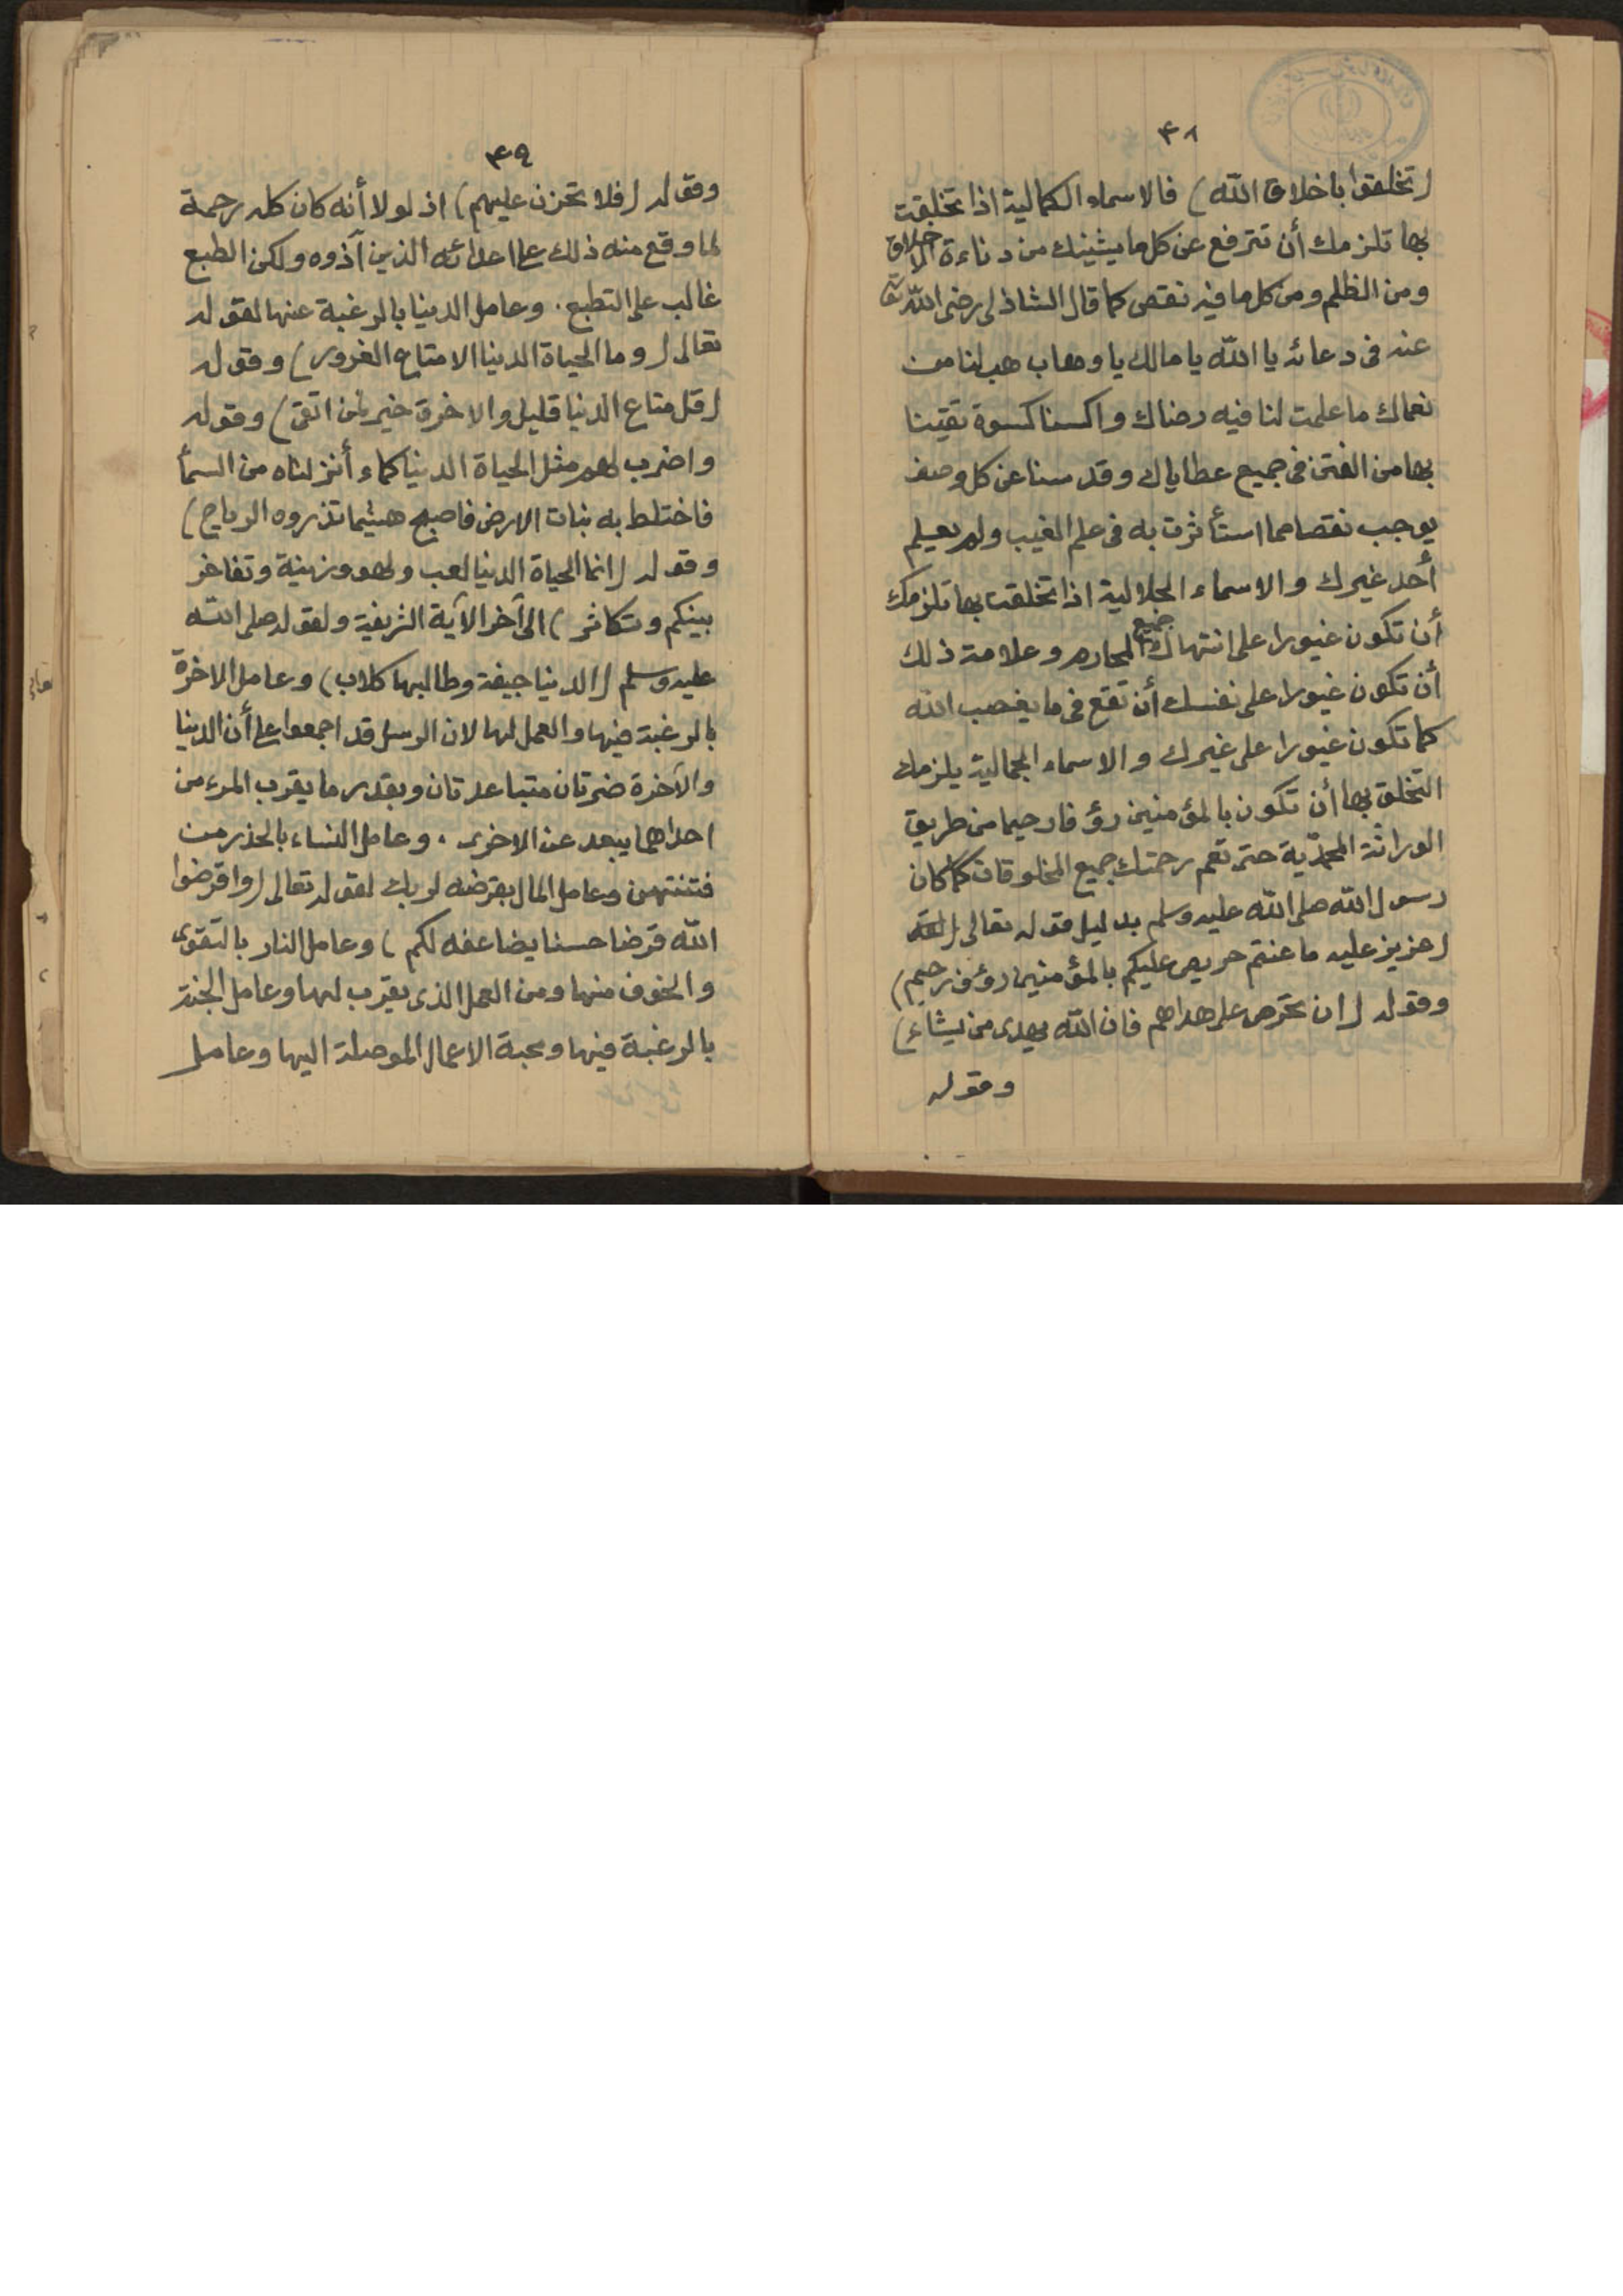 ٤٨
(تخلقوا باخلاق الله) فالاسماء الكمالية اذا تخلقت
بها تلزمك أن تترفع عن كل ما يشينك من دناءة الاخلاق
ومن الظلم ومن كل ما فيه نقص كما قال الشاذلى رضى الله تعالى
عنه فى دعائه يا الله يا مالك يا وهاب هب لنا من
نعماك ما علمت لنا فيه رضاك واكسنا كسوة تقينا
بها من الفتن فى جميع عطاياك وقدسنا عن كل وصف
يوجب نقصا مما استأثرت به فى علم الغيب ولم يعلم
أحد غيرك والاسماء الجلالية اذا تخلقت بها تلزمك
أن تكون غيورا على انتهاك جميع المحارم وعلامة ذلك
أن تكون غيورا على نفسك أن تقع فى ما يغضب الله
كما تكون غيورا على غيرك والاسماء الجمالية يلزمك
التخلق بها أن تكون بالمؤمنين رؤفا رحيما من طريق
الوراثة المحمدّية حتى تعم رحمتك جميع المخلوقات كما كان
رسول الله صلى الله عليه وسلم بدليل قوله تعالى
(عزيز عليه ما عنتم حريص عليكم بالمؤمنين رؤف رحيم)
وقوله (ان تحرص على هداهم فان الله يهدى من يشاء)
وقوله
٤٩
وقوله (فلا تحزن عليهم) اذ لولا أنه كان كله رحمة
لما وقع منه ذلك على اعدائه الذين آذوه ولكن الطبع
غالب على التطبع. وعامل الدنيا بالرغبة عنها لقوله
تعالى (وما الحياة الدنيا الا متاع الغرور) وقوله
(قل متاع الدنيا قليل والاخرة خير لمن اتقى) وقوله
واضرب لهم مثل الحياة الدنيا كماء أنزلناه من السمأ
فاختلط به نبات الارض فاصبح هشيما تذروه الرياح)
وقوله (انما الحياة الدنيا لعب ولهو وزينة وتفاخر
بينكم وتكاثر) الى آخر الآية الشريفة ولقوله صلى الله
عليه وسلم (الدنيا جيفة وطالبها كلاب) وعامل الاخرة
بالرغبة فيها والعمل لها لان الرسل قد اجمعوا على أن الدنيا
والآخرة ضرتان متباعدتان وبقدر ما يقرب المرء من
احداهما يبعد عن الاخرى. وعامل النساء بالحذر من
فتنتهن وعامل المال بقرضه لربك لقوله تعالى (واقرضوا
الله قرضا حسنا يضاعفه لكم) وعامل النار بالتقوى
والخوف منها ومن العمل الذى يقرب لها وعامل الجنة
بالرغبة فيها ومحبة الاعمال الموصلة اليها وعامل